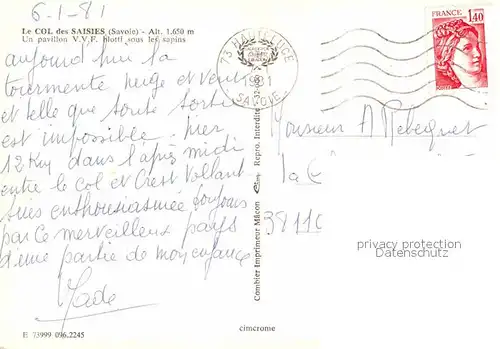 6-1-81
Le COL des SAISIES (Savoie) - Alt. 1.650 m
Un pavillon V.V.F. blotti sous les sapins
aujourd'hui la
tourmente neige et vent
est telle que toute sortie
est impossible. hier
12 Km dans l'après midi
entre le col et Crest Volland
suis enthousiasmée toujours
par ce merveilleux pays
d'une partie de mon enfance
Jade
E 73999 096.2245
Combier Imprimeur Mâcon
Repro. Interdite
cimcrome
73 HAUTELUCE
1981
SAVOIE
FRANCE
1,40
Monsieur A Rebecquet
La
38110
privacy protection
Datenschutz